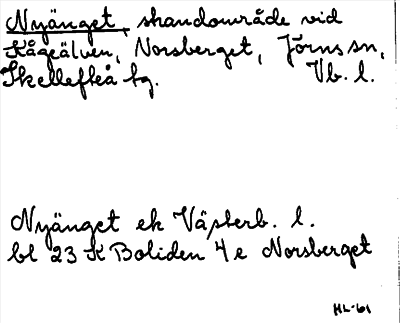 Nyänget, strandområde vid
Kågeälven, Norsberget, Jörns sn,
Skellefteå tg. Vb. l.
Nyänget ek Västerb. l.
bl 23 K Boliden 4 e Norsberget
HL-61